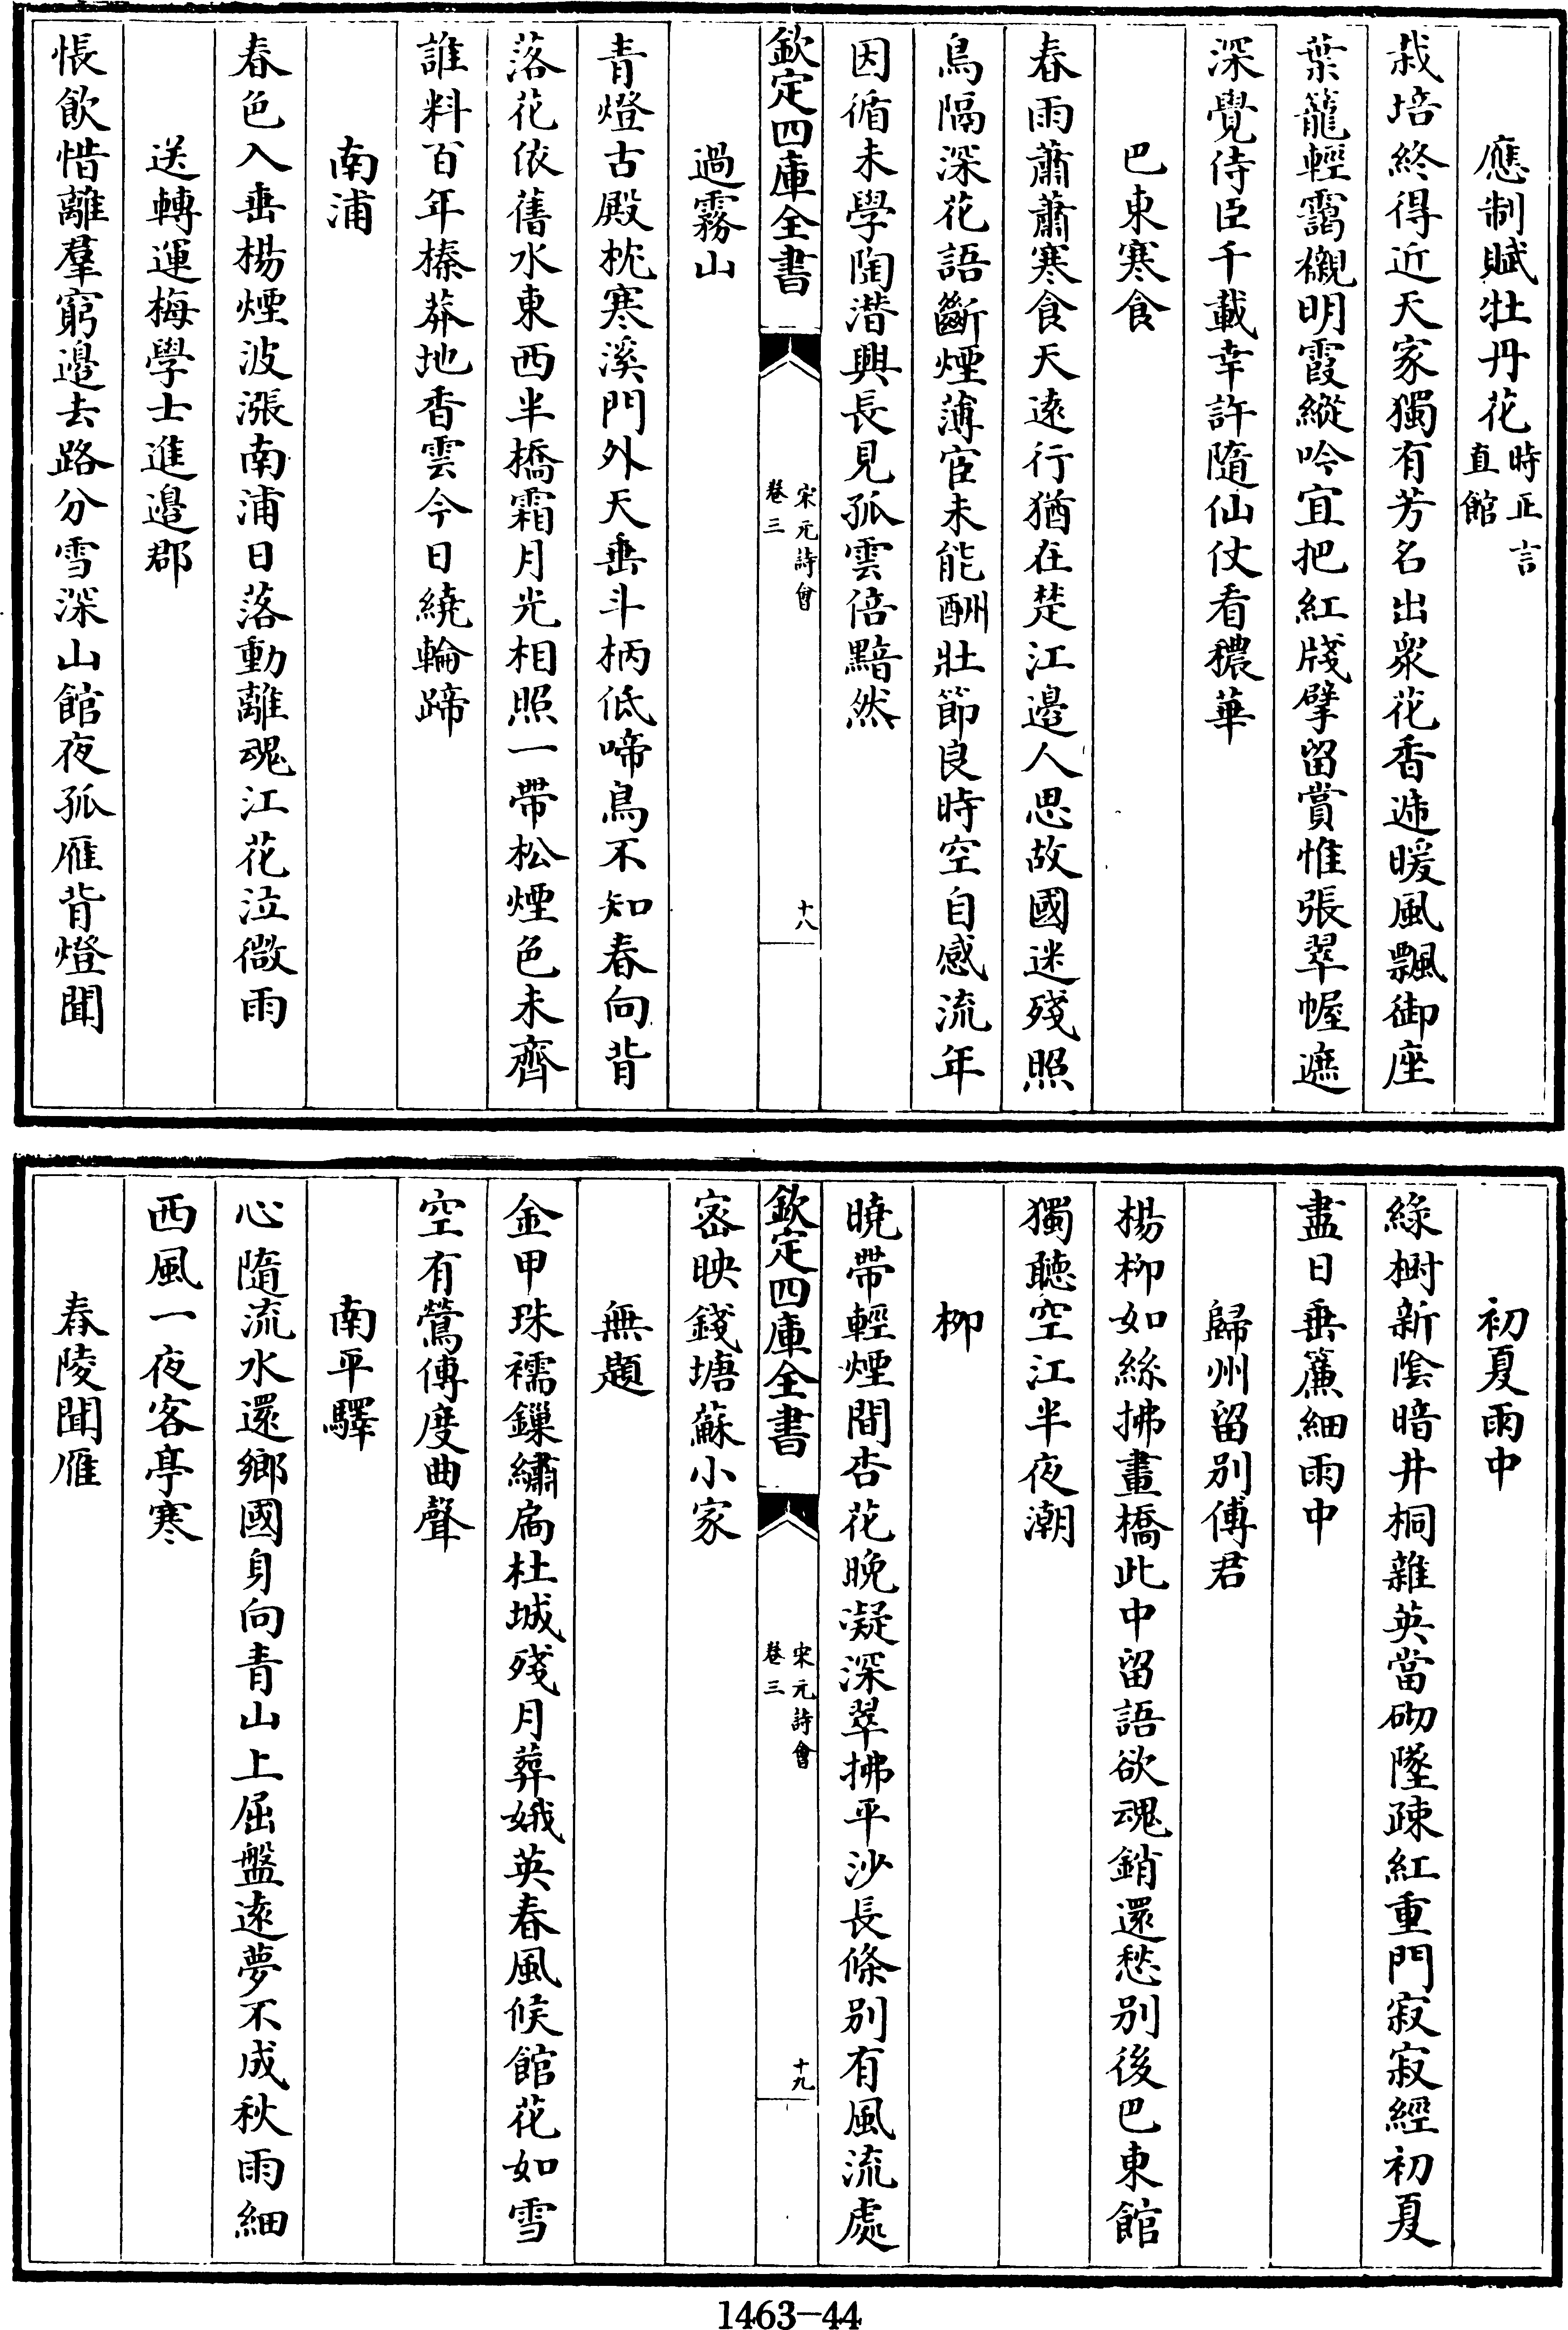 應制賦牡丹花時正言直館
栽培終得近天家獨有芳名出衆花香遞暖風飄御座
葉籠輕靄襯明霞縱吟宜把紅牋擘留賞惟張翠幄遮
深覺侍臣千載幸許隨仙仗看穠華
巴東寒食
春雨蕭蕭寒食天遠行猶在楚江邊人思故國迷殘照
鳥隔深花語斷煙薄宦未能酬壯節良時空自感流年
因循未學陶潛興長見孤雲倍黯然
欽定四庫全書
宋元詩會
卷三
十八
過霧山
青燈古殿枕寒溪門外天垂斗柄低啼鳥不知春向背
落花依舊水東西半橋霜月光相照一帶松煙色未齊
誰料百年榛莽地香雲今日繞輪蹄
南浦
春色入垂楊煙波漲南浦日落動離魂江花泣微雨
送轉運梅學士進邉郡
悵飲惜離羣窮邉去路分雪深山館夜孤雁背燈聞
初夏雨中
綠樹新陰暗井桐雜英當砌墜疎紅重門寂寂經初夏
盡日垂簾細雨中
歸州留別傅君
楊柳如絲拂畫橋此中留語欲魂銷還愁別後巴東館
獨聽空江半夜潮
柳
曉帶輕煙間杏花晚凝深翠拂平沙長條別有風流處
密映錢塘蘇小家
欽定四庫全書
宋元詩會
卷三
十九
無題
金甲珠襦鏁繡扃杜城殘月葬娥英春風候館花如雪
空有鶯傳度曲聲
南平驛
心隨流水還鄉國身向青山上屈盤遠夢不成秋雨細
西風一夜客亭寒
舂陵聞雁
1463-44